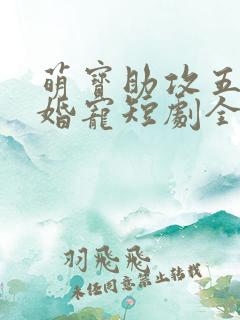 萌寶助攻五
婚寵短劇全
羽飛飛
未經同意禁止轉載